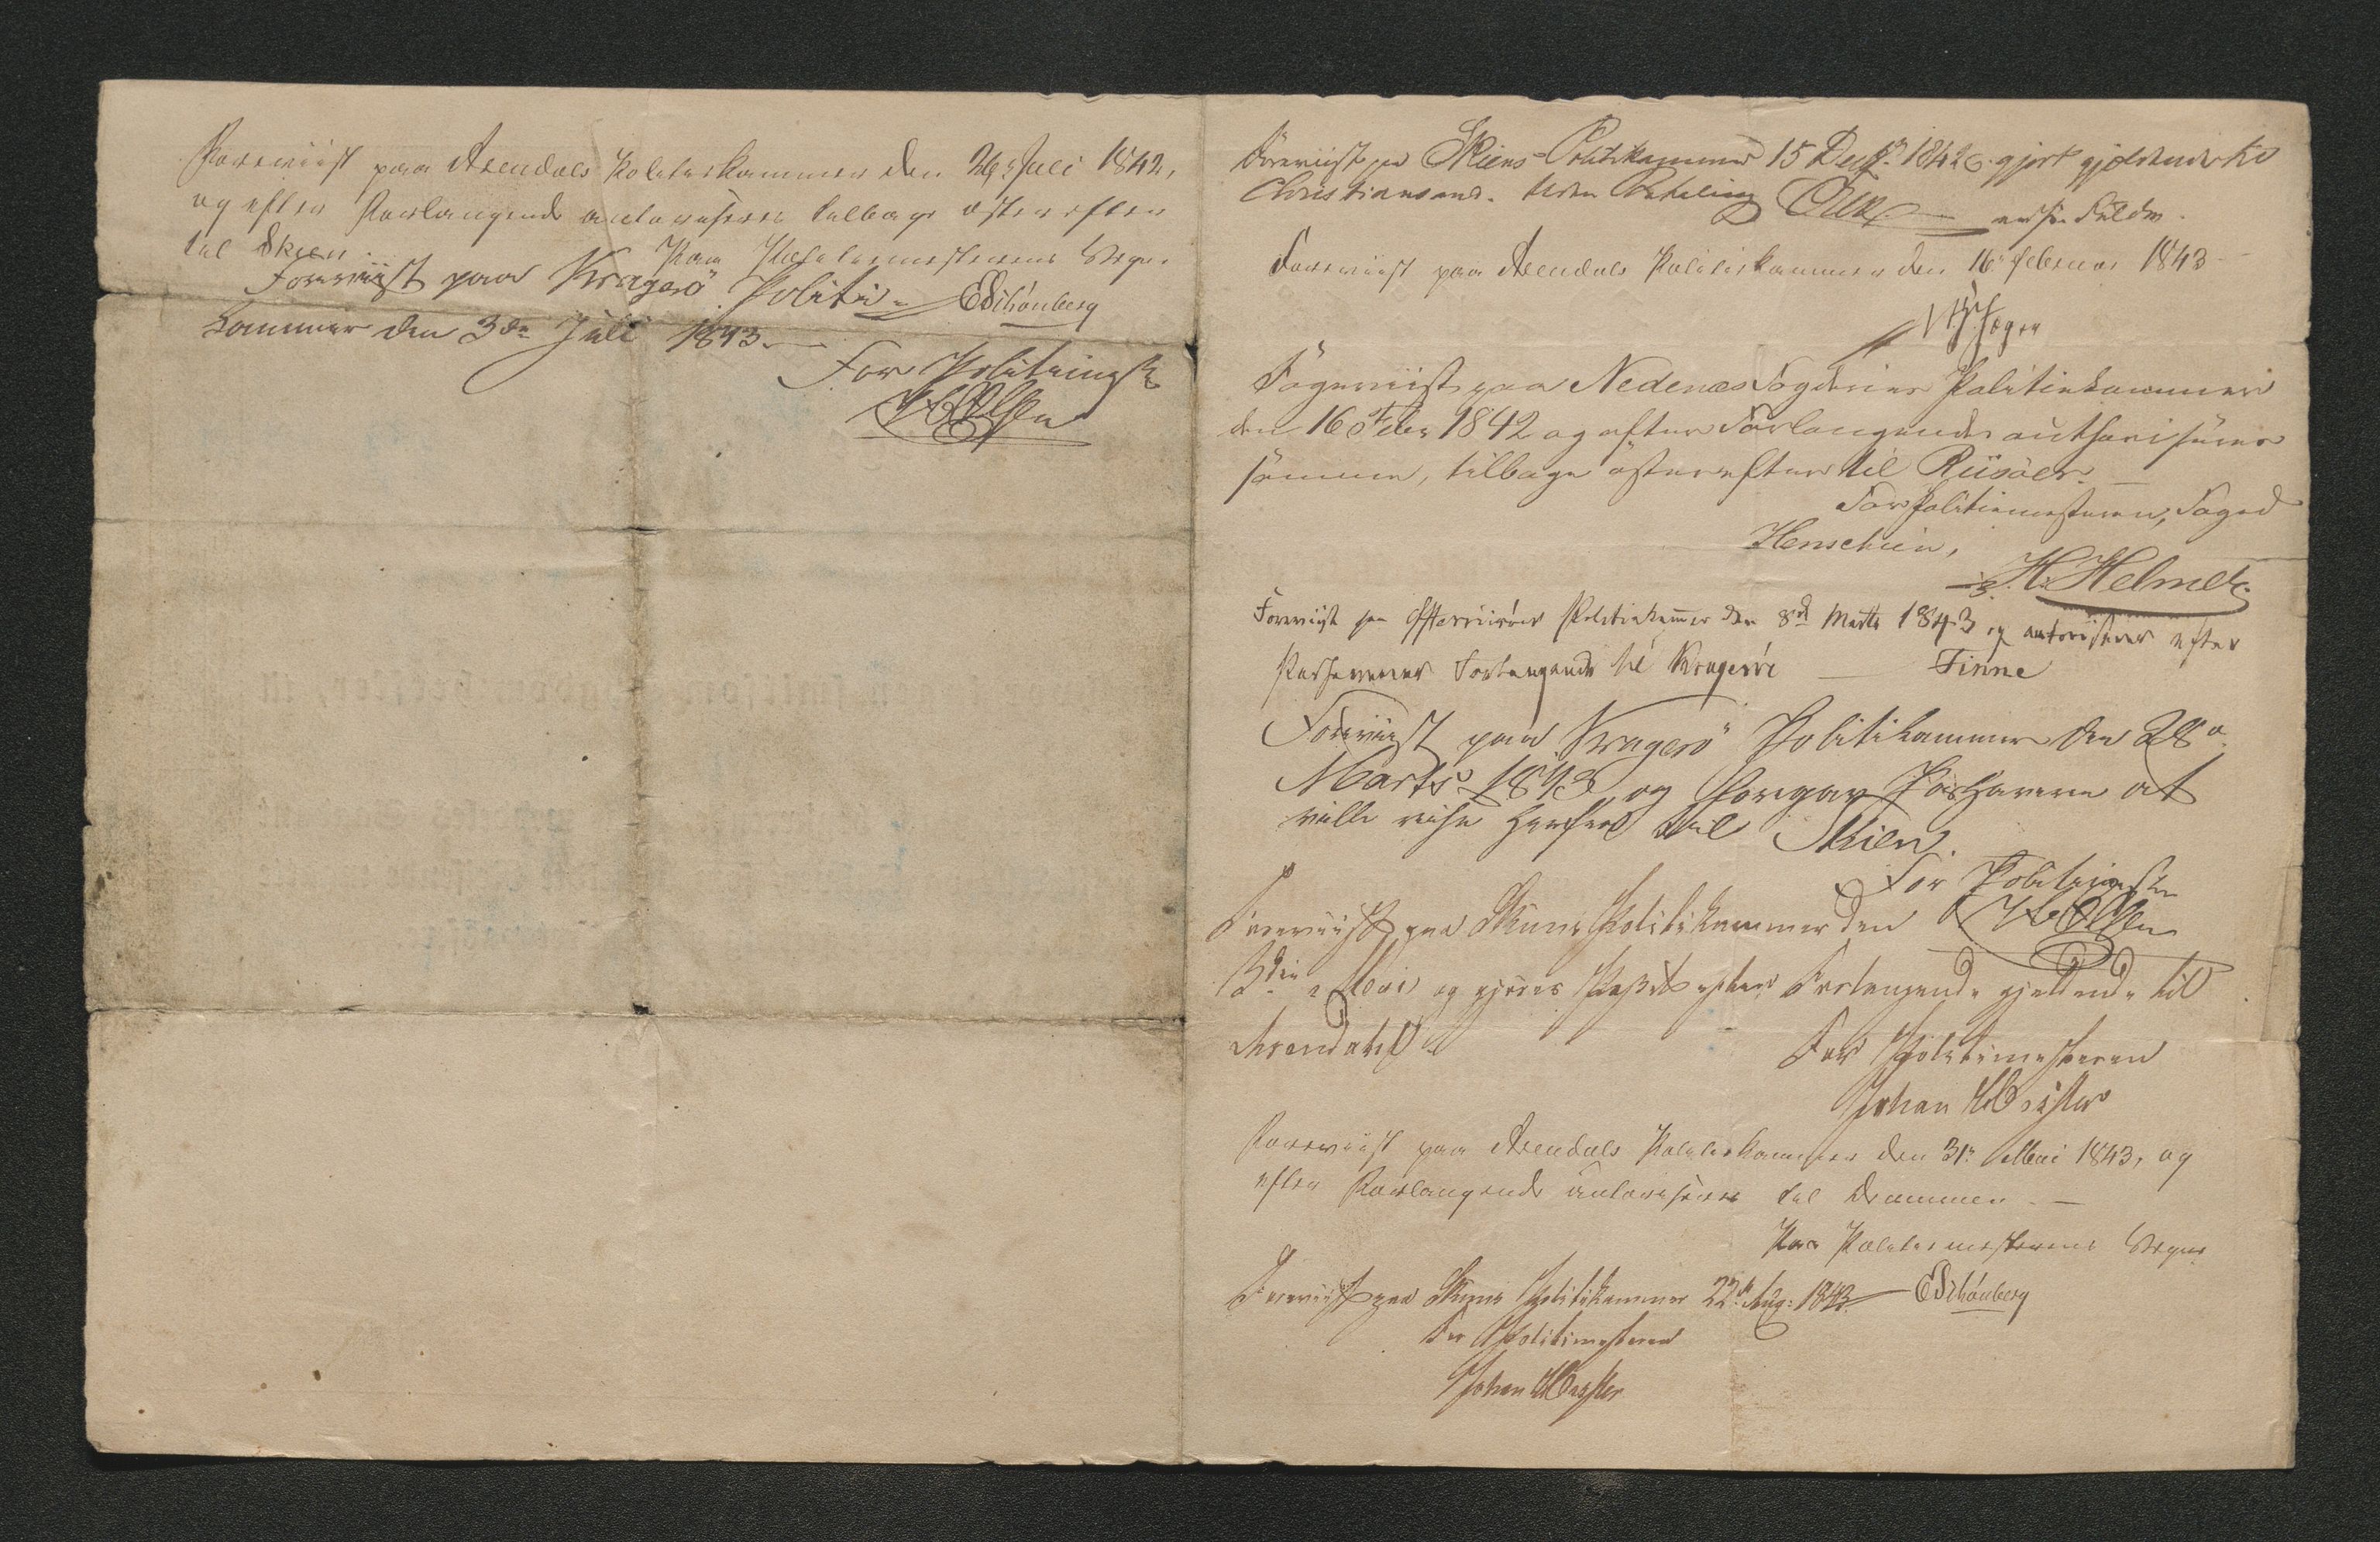 Foreviist paa Arendals Politiekammer den 26de Juli 1842,
og efter Forlangende autoriseres tilbage østerefter
til Skien.
Paa Politiemesterens Vegne
ESchönberg
Foreviist paa Kragerö Politi-
kammer den 3de Juli 1843.
For Politimestr
Olsen
Foreviist paa Skiens Politikammer 15 Decbr 1842 & gjort gjældende til
Christiansand. Uden Betaling
Foreviist paa Arendals Politiekammer den 16de Februar 1843
Foreviist paa Nedenæs Fogderies Politiekammer
den 16 Feb 1842 og efter Forlangende authoriseres
samme, tilbage østerefter til Riisöer.
For Politiemesteren, Foged
Henschien,
H. Helmer
Foreviist paa Østerriisöer Politiekammer den 8de Marts 1843 og autoriseres efter
Passhaverens Forlangende til Kragerøe
Finne
Foreviist paa Kragerö Politikammer den 28de
Marts 1843 og foregav Pashaveren at
ville reise herfra til Skien.
For Politimestren
Olsen
Foreviist paa Skiens Politikammer den
3die Mai og gjøres Passet efter Forlangende gjeldende til
Arendahl
For Politimesteren
Johan
Foreviist paa Arendals Politiekammer den 31te Mai 1843, og
efter Forlangende autoriseres til Drammen.
Paa Politiemesterens Vegne
ESchönberg
Foreviist paa Skiens Politikammer 22de Aug: 1843.
For Politimesteren
Johan